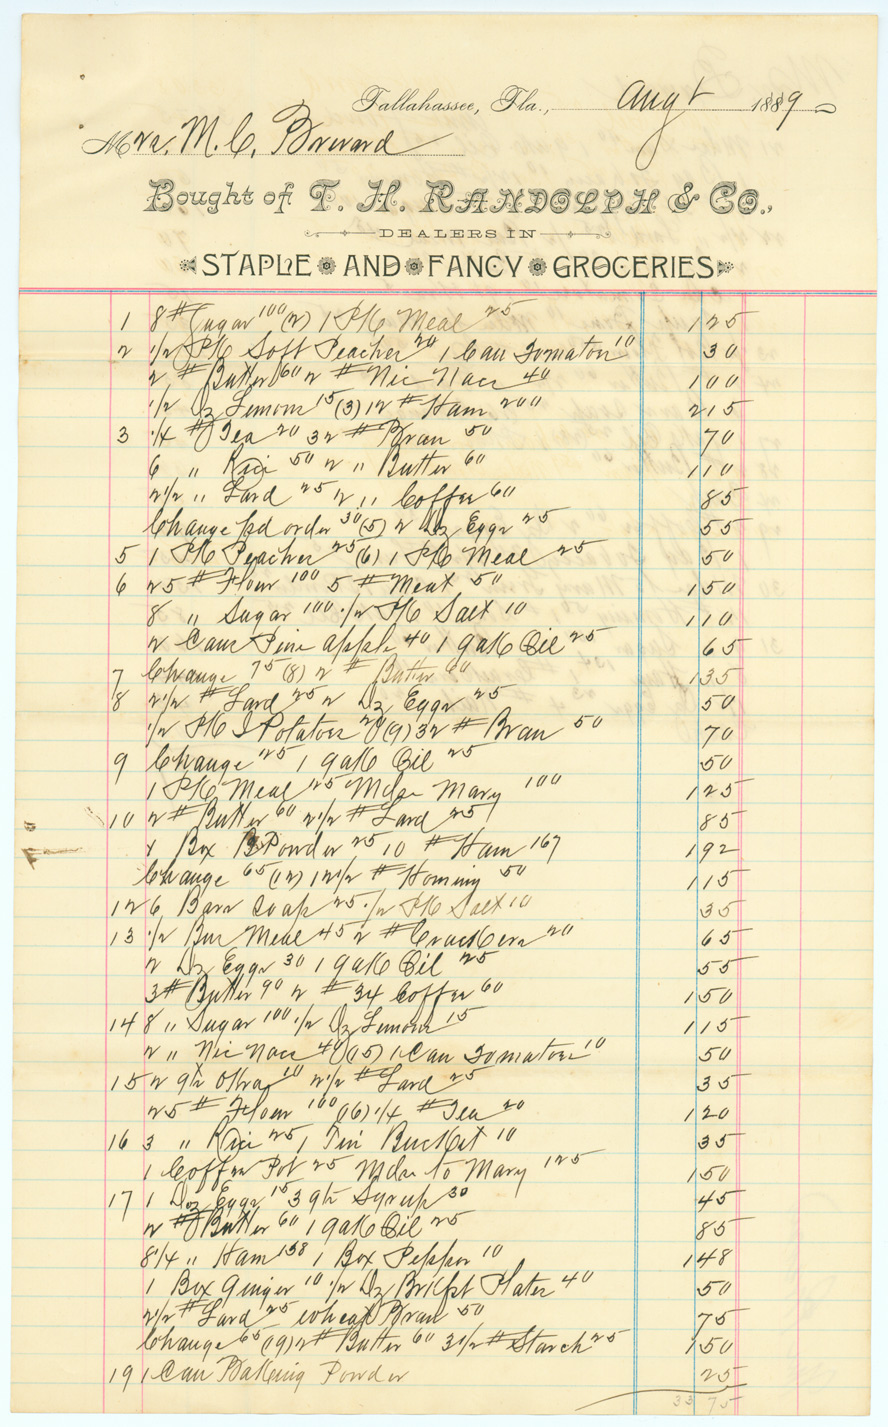 Tallahassee, Fla., Augt 1889
Mrs. M. C. Brevard
Bought of T. H. RANDOLPH & CO.,
DEALERS IN
STAPLE AND FANCY GROCERIES
1 8 # Sugar 100 (2) 1 PK Meal 25 125
2 1/2 PK Soft Peaches 20 1 Can Tomatoes 10 30
2 # Butter 60 2 # Nic Nacs 40 100
1/2 Dz Lemons 15 (3) 12 # Ham 200 215
3 1/4 # Tea 20 32 # Bran 50 70
6 " Rice 50 2 " Butter 60 110
2 1/2 " Lard 25 2 " Coffee 60 85
Change pd order 30 (5) 2 Dz Eggs 25 55
5 1 PK Peaches 25 (6) 1 PK Meal 25 50
6 25 # Flour 100 5 # Meat 50 150
8 " Sugar 100 1/2 PK Salt 10 110
2 Cans Pine apple 40 1 gall Oil 25 65
7 Change 75 (8) 2 # Butter 60 135
8 2 1/2 # Lard 25 2 Dz Eggs 25 50
1/2 PK I Potatoes 20 (9) 32 # Bran 50 70
9 Change 25 1 gall Oil 25 50
1 PK Meal 25 Mdse Mary 100 125
10 2 # Butter 60 2 1/2 # Lard 25 85
1 Box B Powder 25 10 # Ham 167 192
Change 65 (12) 12 1/2 # Hominy 50 115
12 6 Bars Soap 25 1/2 PK Salt 10 35
13 1/2 Bus Meal 45 2 # Crackers 20 65
2 Dz Eggs 30 1 gall Oil 25 55
3 # Butter 90 2 # 34 Coffee 60 150
14 8 " Sugar 100 1/2 Dz Lemons 15 115
2 " Nic Nacs 40 (15) 1 Can Tomatoes 10 50
15 2 qts Okra 10 2 1/2 # Lard 25 35
25 # Flour 100 (16) 1/4 # Tea 20 120
16 3 " Rice 25 1 Tin Bucket 10 35
1 Coffee Pot 25 Mdse to Mary 125 150
17 1 Doz Eggs 15 3 qts Syrup 30 45
2 # Butter 60 1 gall Oil 25 85
8 1/4 " Ham 138 1 Box Pepper 10 148
1 Box Ginger 10 1/2 Dz Brkfst Plates 40 50
2 1/2 # Lard 25 wheat Bran 50 75
Change 65 (19) 2 # Butter 60 3 1/2 # Starch 25 150
19 1 Can Baking Powder 25
33 75